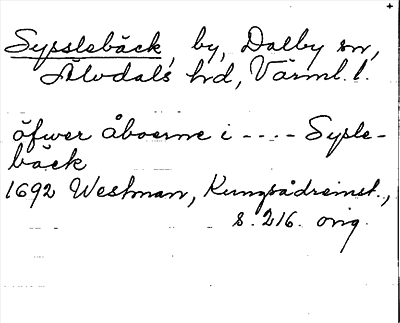 Sysslebäck, by, Dalby sn,
Älvdals hd, Värml. l.
öfwer åboerne i ---- Sysle-
bäck
1692 Westman, Kungsådreinst.,
s. 216. orig.